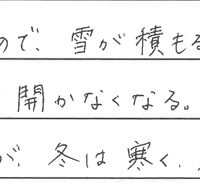 ので、雪が積もる
開かなくなる。
が、冬は寒く、